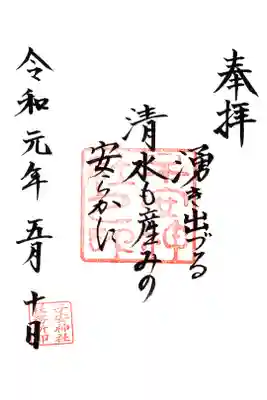 奉拝
湧き出づる
清水も産みの
安らかに
令和元年五月十日